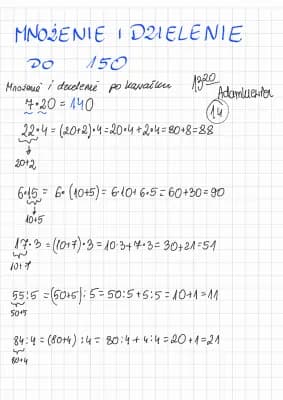 MNOŻENIE I DZIELENIE
DO 150
Mnożenie i dzielenie po kawałku
1320
Adamwester
14
7•20 = 140
22•4 = (20+2)•4 = 20•4 + 2•4 = 80+8 = 88
20+2
6•15 = 6•(10+5) = 6•10 + 6•5 = 60+30 = 90
10+5
17•3 = (10+7)•3 = 10•3 + 7•3 = 30+21 = 51
10+7
55:5 = (50+5):5 = 50:5 + 5:5 = 10+1 = 11
50+5
84:4 = (80+4):4 = 80:4 + 4:4 = 20+1 = 21
80+4